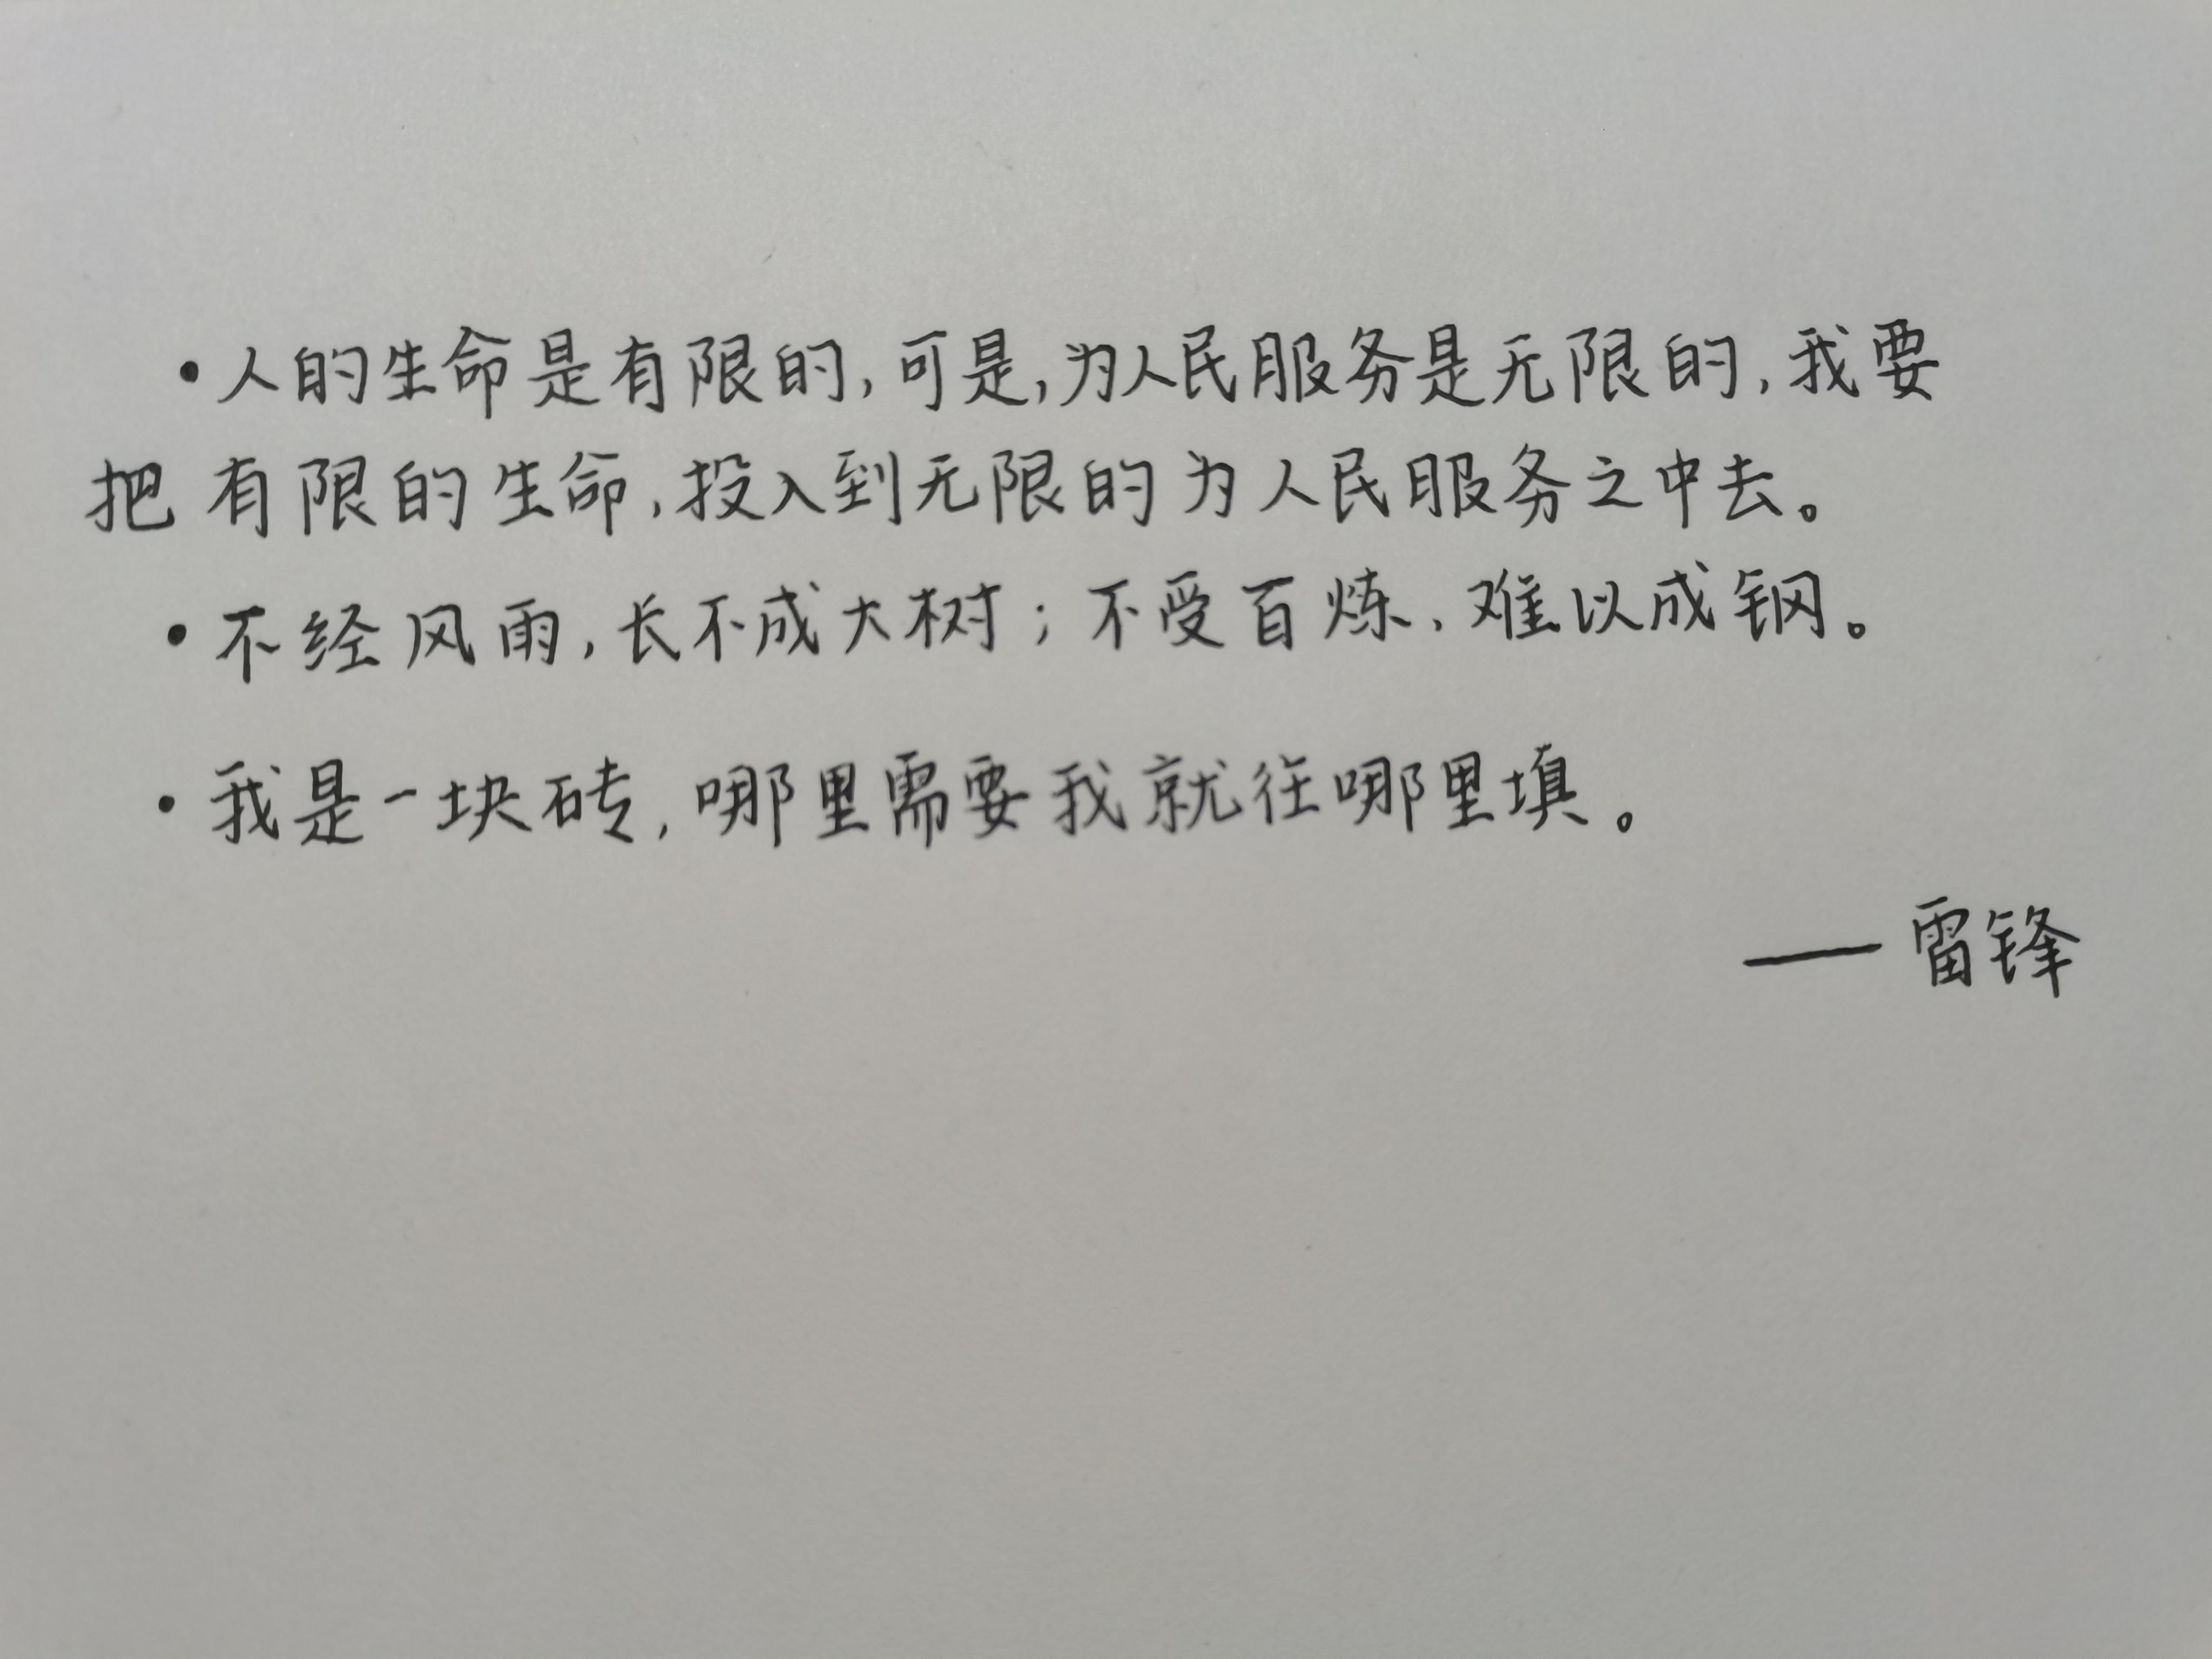 •人的生命是有限的,可是,为人民服务是无限的,我要
把有限的生命,投入到无限的为人民服务之中去。
•不经风雨,长不成大树;不受百炼,难以成钢。
•我是一块砖,哪里需要我就往哪里填。
——雷锋